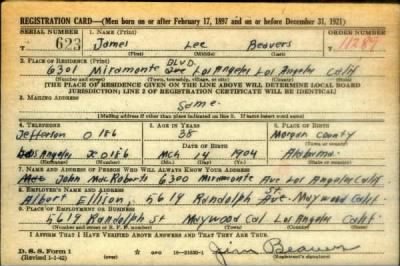 REGISTRATION CARD—(Men born on or after February 17, 1897 and on or before December 31, 1921)
SERIAL NUMBER 1. NAME (Print) ORDER NUMBER
U 623 James Lee Beavers 11289
(First) (Middle) (Last)
2. PLACE OF RESIDENCE (Print) BLVD.
6301 Miramonte Ave Los Angeles Los Angeles Calif
(Number and street) (Town, township, village, or city) (County) (State)
[THE PLACE OF RESIDENCE GIVEN ON THE LINE ABOVE WILL DETERMINE LOCAL BOARD
JURISDICTION; LINE 2 OF REGISTRATION CERTIFICATE WILL BE IDENTICAL]
3. MAILING ADDRESS
Same
[Mailing address if other than place indicated on line 2. If same insert word same]
4. TELEPHONE 5. AGE IN YEARS 6. PLACE OF BIRTH
Jefferson 0186 38 Morgan County
DATE OF BIRTH
Los Angeles 0186 Mch 14 1904 Alabama
7. NAME AND ADDRESS OF PERSON WHO WILL ALWAYS KNOW YOUR ADDRESS
John McRoberts 6300 Miramonte Ave Los Angeles Calif.
8. EMPLOYER'S NAME AND ADDRESS St.
Albert Ellison, 5619 Randolph Ave. Maywood Calif
9. PLACE OF EMPLOYMENT OR BUSINESS
5619 Randolph St Maywood Cal Los Angeles Calif
(Number and street or R. F. D. number) (Town) (County) (State)
I AFFIRM THAT I HAVE VERIFIED ABOVE ANSWERS AND THAT THEY ARE TRUE.
D. S. S. Form 1
(Revised 1-1-42) Jim Beavers